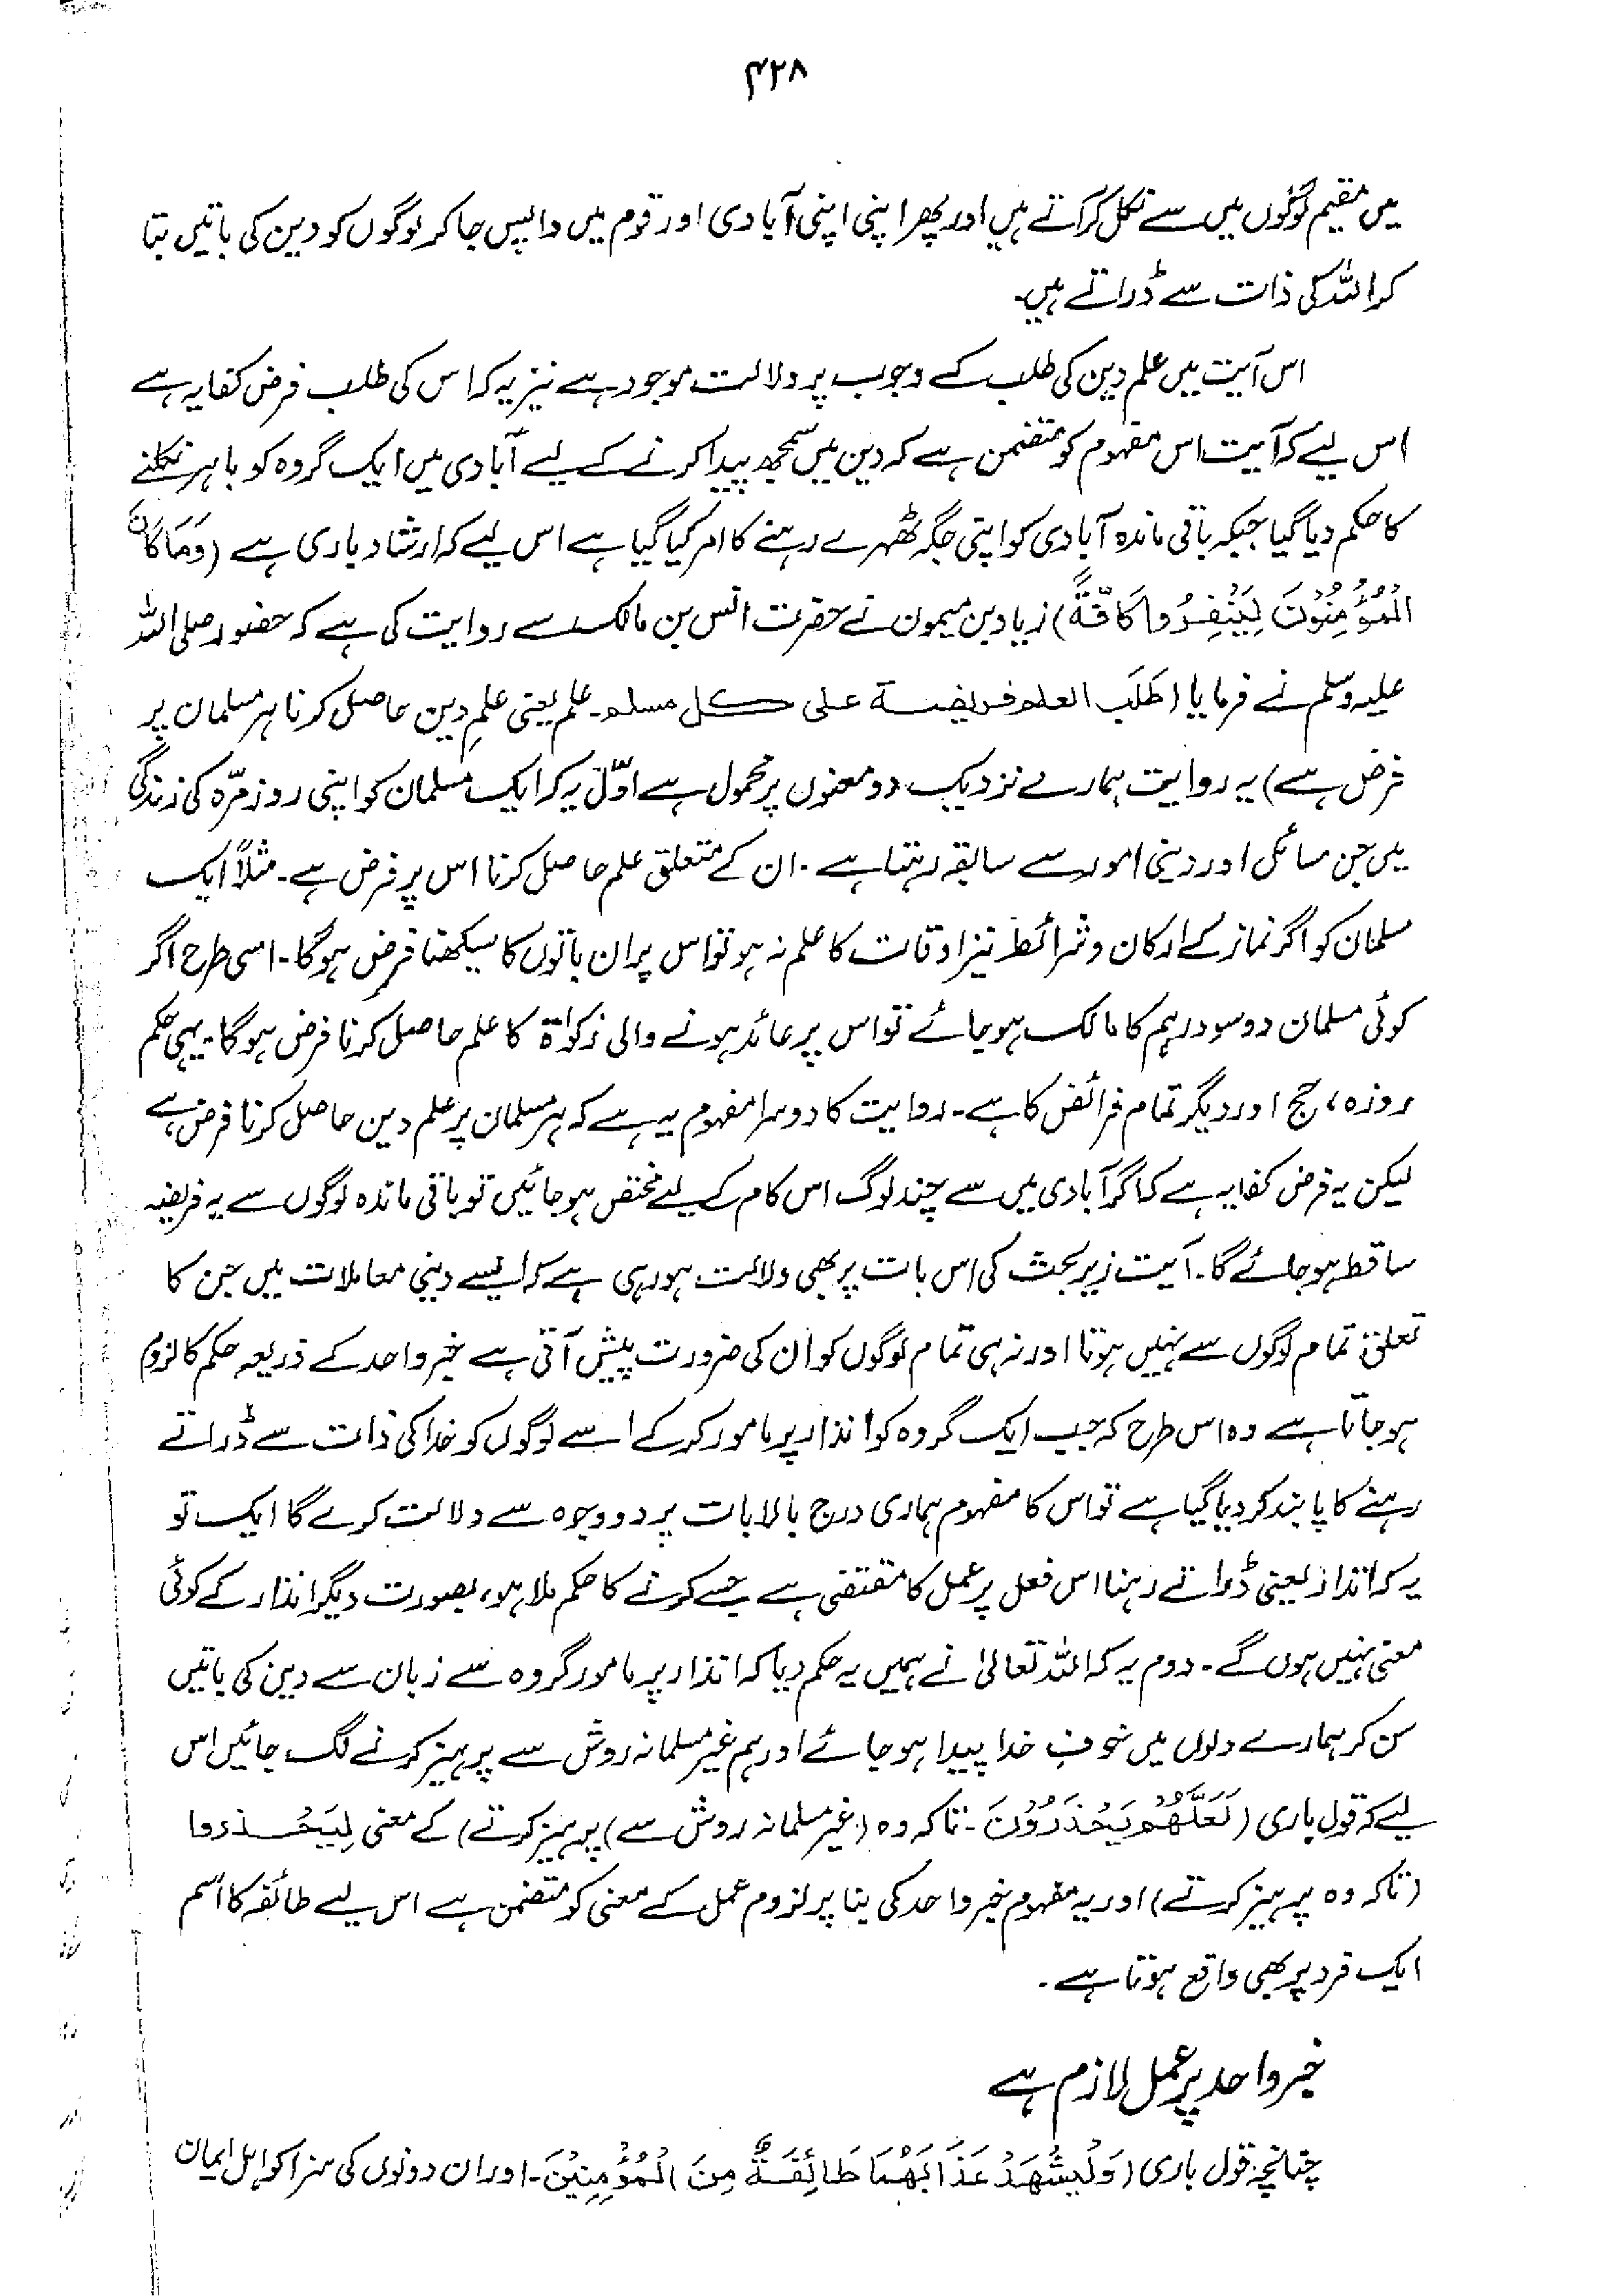 ۴۲۸
میں مقیم لوگوں میں سے نکل کر آتے ہیں اور پھر اپنی اپنی آبادی اور قوم میں واپس جا کر لوگوں کو دین کی باتیں بتا
کر اللہ کی ذات سے ڈراتے ہیں۔
اس آیت میں علم دین کی طلب کے وجوب پر دلالت موجود ہے نیز یہ کہ اس کی طلب فرض کفایہ ہے
اس لیے کہ آیت اس مفہوم کو متضمن ہے کہ دین میں سمجھ پیدا کرنے کے لیے آبادی میں ایک گروہ کو باہر نکلنے
کا حکم دیا گیا جبکہ باقی ماندہ آبادی کو اپنی جگہ ٹھہرے رہنے کا امر کیا گیا ہے اس لیے کہ ارشاد باری ہے (وَمَا كَانَ
الْمُؤْمِنُوْنَ لِيَنْفِرُوا كَافَّةً) زیاد بن میمون نے حضرت انس بن مالک سے روایت کی ہے کہ حضور صلی اللہ
علیہ وسلم نے فرمایا (طَلَب العلم فریضۃ علی کل مسلم۔ علم یعنی علمِ دین حاصل کرنا ہر مسلمان پر
فرض ہے) یہ روایت ہمارے نزدیک دو معنوں پر محمول ہے اوّل یہ کہ ایک مسلمان کو اپنی روز مرّہ کی زندگی
میں جن مسائل اور دینی امور سے سابقہ رہتا ہے۔ ان کے متعلق علم حاصل کرنا اس پر فرض ہے۔ مثلاً ایک
مسلمان کو اگر نماز کے ارکان و شرائط نیز اوقات کا علم نہ ہو تو اس پر ان باتوں کا سیکھنا فرض ہوگا۔ اسی طرح اگر
کوئی مسلمان دو سو درہم کا مالک ہو جائے تو اس پر عائد ہونے والی زکوٰۃ کا علم حاصل کرنا فرض ہوگا۔ یہی حکم
روزہ، حج اور دیگر تمام فرائض کا ہے۔ روایت کا دوسرا مفہوم یہ ہے کہ ہر مسلمان پر علم دین حاصل کرنا فرض ہے
لیکن یہ فرض کفایہ ہے کہ اگر آبادی میں سے چند لوگ اس کام کے لیے مختص ہو جائیں تو باقی ماندہ لوگوں سے یہ فریضہ
ساقط ہو جائے گا۔ آیت زیر بحث کی اس بات پر بھی دلالت ہو رہی ہے کہ ایسے دینی معاملات میں جن کا
تعلق تمام لوگوں سے نہیں ہوتا اور نہ ہی تمام لوگوں کو ان کی ضرورت پیش آتی ہے خبر واحد کے ذریعہ حکم کا لزوم
ہو جاتا ہے وہ اس طرح کہ جب ایک گروہ کو انذار پر مامور کر کے اسے لوگوں کو خدا کی ذات سے ڈراتے
رہنے کا پابند کر دیا گیا ہے تو اس کا مفہوم ہماری درج بالا بات پر دو وجوہ سے دلالت کرے گا ایک تو
یہ کہ انذار یعنی ڈراتے رہنا اس فعل پر عمل کا مقتضی ہے جسے کرنے کا حکم ملا ہو، بصورت دیگر انذار کے کوئی
معنی نہیں ہوں گے۔ دوم یہ کہ اللہ تعالیٰ نے ہمیں یہ حکم دیا کہ انذار پر مامور گروہ سے زبان سے دین کی باتیں
سن کر ہمارے دلوں میں خوفِ خدا پیدا ہو جائے اور ہم غیر مسلمانہ روش سے پرہیز کرنے لگ جائیں اس
لیے کہ قول باری (لَعَلَّهُمْ يَحْذَرُوْنَ۔ تاکہ وہ (غیر مسلمانہ روش سے) پرہیز کرتے) کے معنی لِيَحْذروا
(تاکہ وہ پرہیز کرتے) اور یہ مفہوم خبر واحد کی بنا پر لزوم عمل کے معنی کو متضمن ہے اس لیے طائفہ کا اسم
ایک فرد پر بھی واقع ہوتا ہے۔
خبر واحد پر عمل لازم ہے
چنانچہ قول باری (وَلْيَشْهَدْ عَذَابَهُمَا طَائِفَةٌ مِنَ الْمُؤْمِنِيْنَ۔ اور ان دونوں کی سزا کو اہل ایمان